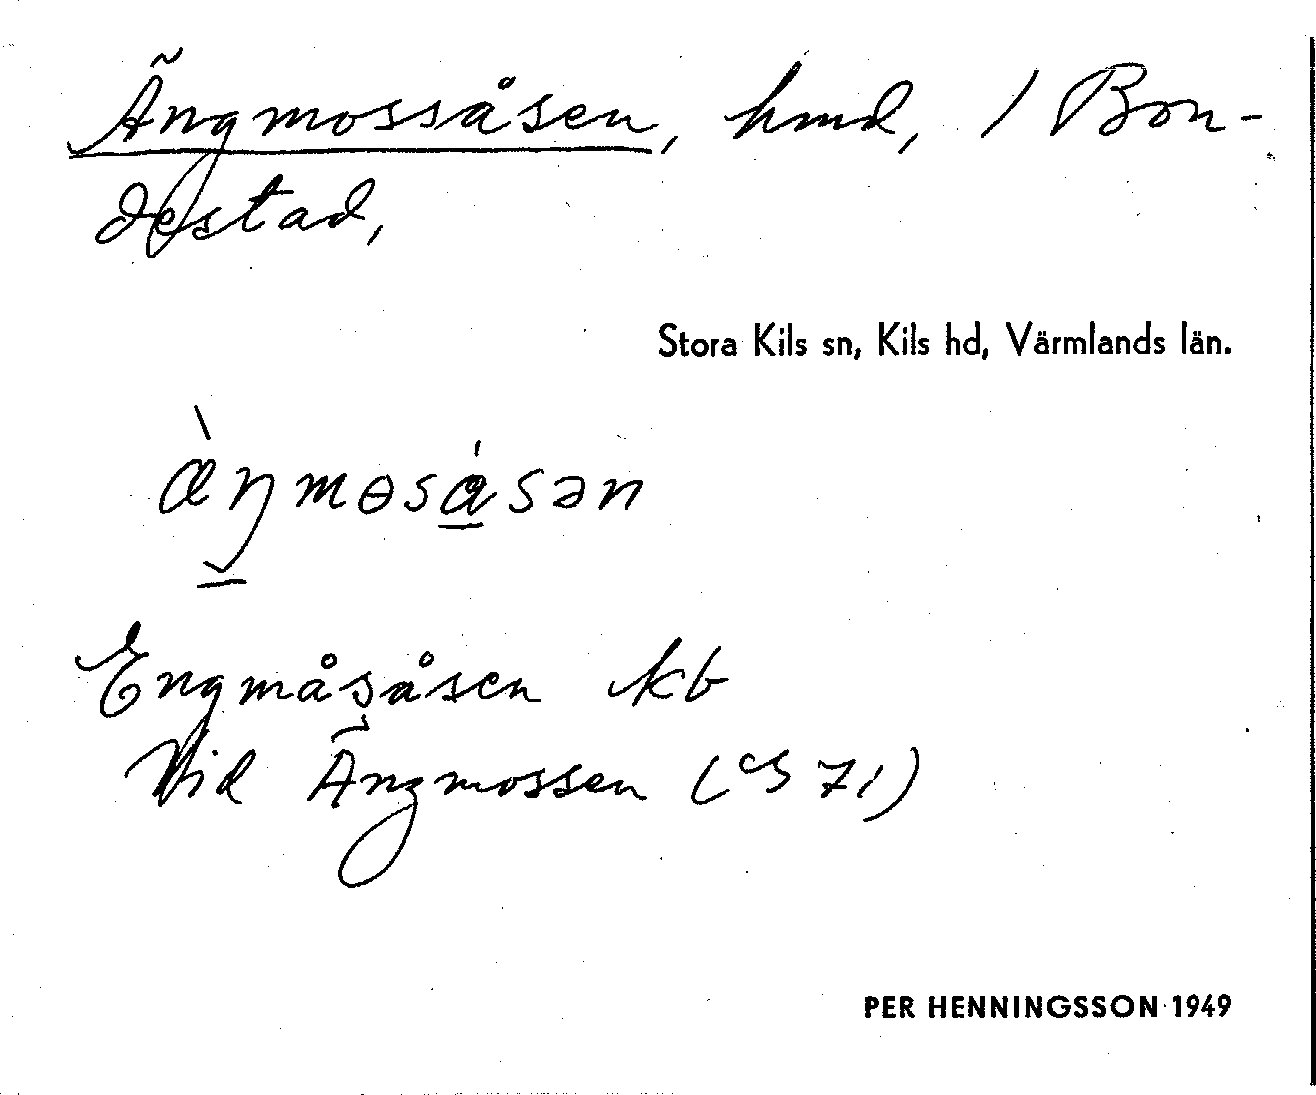 Ängmossåsen, hmd, 1 Bon-
destad,
Stora Kils sn, Kils hd, Värmlands län.
æ̀ŋmɵsåsən
Engmåsåsen kb
Vid Ängmossen (cS 71)
PER HENNINGSSON 1949